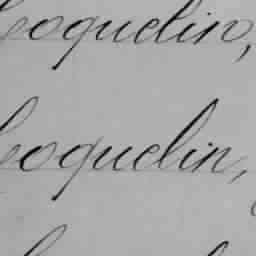 Coquelin,
Coquelin,